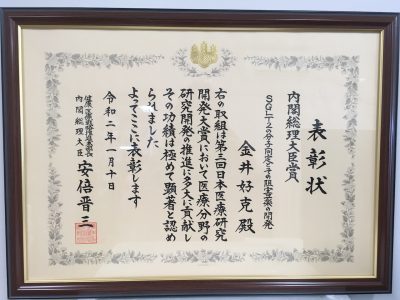 表彰状
内閣総理大臣賞
SGLTの分子同定とその阻害薬の開発
金井好克殿
右の取組は第三回日本医療研究
開発大賞において医療分野の
研究開発の推進に多大に貢献し
その功績は極めて顕著と認め
られました
よってここに表彰します
令和二年一月十日
健康・医療戦略推進本部長
内閣総理大臣
安倍晋三